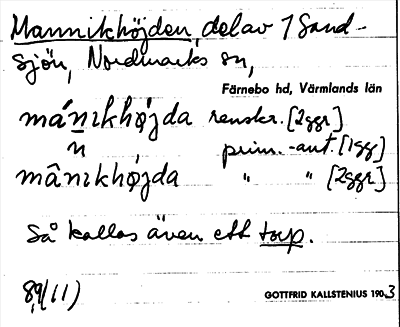 Mannikhöjden, del av 1 Sand-
sjön, Nordmarks sn,
Färnebo hd, Värmlands län
mánıkhøjda renskr. [2ggr]
n prim.-ant. [1gg]
mânıkhøjda " " [2ggr]
Så kallas även ett torp.
8,9(11)
GOTTFRID KALLSTENIUS 1903